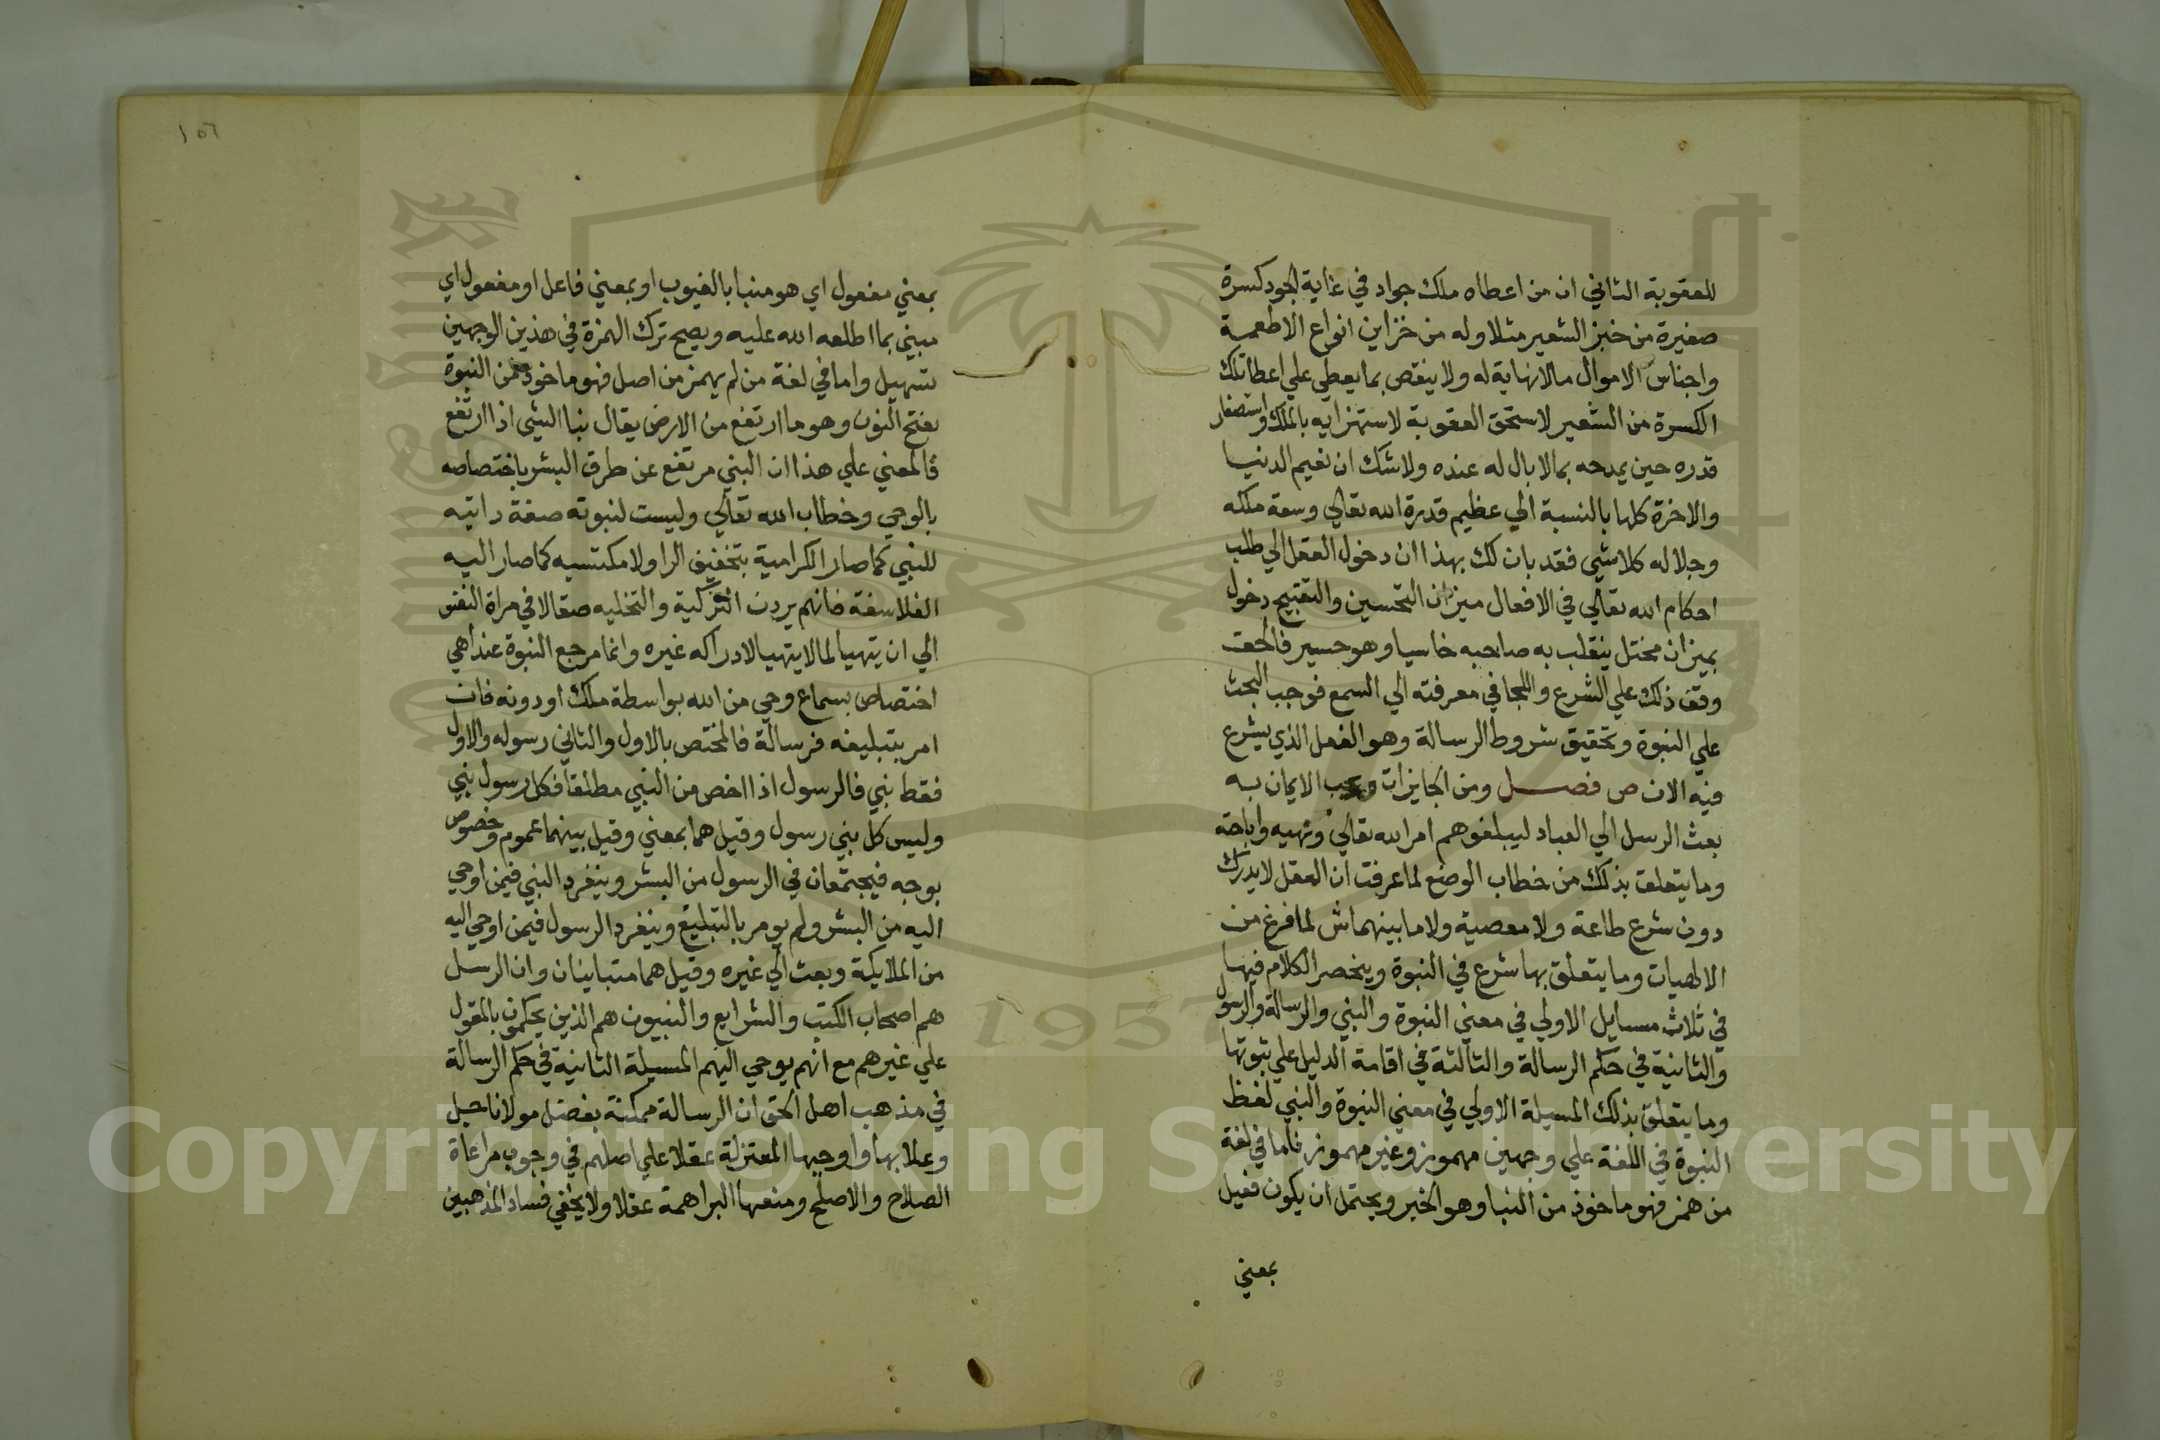 للعقوبة الثاني ان من اعطاه ملك جواد في غاية الجود كسرة
صغيرة من خبز الشعير مثلا وله من خزاين انواع الاطعمة
واجناس الاموال مالا نهاية له ولا ينقص بما يعطي علي اعطا تلك
الكسرة من الشعير لاستحق العقوبة لاستهزايه بالملك واستصغار
قدره حين يمدحه بمالا بال له عنده ولا شك ان نعيم الدنيا
والاخرة كلها بالنسبة الي عظيم قدرة الله تعالي وسعة ملكه
وجلاله كلا شي فقد بان لك بهذا ان دخول العقل الي طلب
احكام الله تعالي في الافعال ميزان التحسين والتقبيح دخول
بميزان مختل ينقلب به صاحبه خاسيا وهو حسير فالحق
وقف ذلك علي الشرع واللجا في معرفته الي السمع فوجب البحث
علي النبوة وتحقيق شروط الرسالة وهو الفصل الذي يشرع
فيه الان ص فصل ومن الجايزات ويجب الايمان به
بعث الرسل الي العباد ليبلغوهم امر الله تعالي ونهيه واباحته
وما يتعلق بذلك من خطاب الوضع لما عرفت ان العقل لا يدرك
دون شرع طاعة ولا معصية ولا ما بينهما ش لما فرغ من
الالهيات وما يتعلق بها شرع في النبوة وينحصر الكلام فيها
في ثلاث مسايل الاولي في معني النبوة والنبي والرسالة والرسول
والثانية في حكم الرسالة والثالثة في اقامة الدليل علي ثبوتها
وما يتعلق بذلك المسيلة الاولي في معني النبوة والنبي لفظ
النبوة في اللغة علي وجهين مهموز وغير مهموز فاما في لغة
من همز فهو ماخوذ من النبا وهو الخبر ويحتمل ان يكون فعيل
بمعني
١٥٦
بمعني مفعول اي هو منبا بالغيوب او بمعني فاعل او مفعول اي
مبني بما اطلعه الله عليه ويصح ترك الهمزة في هذين الوجهين
تسهيل واما في لغة من لم يهمز من اصل فهو ماخوذ من النبوة
بفتح النون وهو ما ارتفع من الارض يقال نبا الشي اذا ارتفع
فالمعني علي هذا ان النبي مرتفع عن طرق البشر باختصاصه
بالوحي وخطاب الله تعالي وليست لنبوته صفة ذاتيه
للنبي كما صار الكرامية بتخفيف الرا ولا مكتسبه كما صار اليه
الفلاسفة فانهم يردن التزكية والتخليه صقالا في مراة النفس
الي ان يتهيا لما لا يتهيا لادراكه غيره وانما مرجع النبوة عندا هي
اختصاص بسماع وحي من الله بواسطة ملك او دونه فان
امر بتبليغه فرسالة فالمختص بالاول والثاني رسوله والاول
فقط نبي فالرسول اذا اخص من النبي مطلقا فكل رسول نبي
وليس كل نبي رسول وقيل هما بمعني وقيل بينهما عموم وخصوص
بوجه فيجتمعان في الرسول من البشر وينفرد النبي فيمن اوحي
اليه من البشر ولم يومر بالتبليغ وينفرد الرسول فيمن اوحي اليه
من الملايكة وبعث الي غيره وقيل هما متباينان وان الرسل
هم اصحاب الكتب والشرايع والنبيون هم الذين يحكمون بالمقول
علي غيرهم مع انهم يوحي اليهم المسيلة الثانية في حكم الرسالة
في مذهب اهل الحق ان الرسالة ممكنة بفضل مولانا جل
وعلا بها واوجبها المعتزلة عقلا علي اصلهم في وجوب مراعاة
الصلاح والاصلح ومنعها البراهمة عقلا ولا يخفي فساد المذهبين
Copyright © King Saud University
1957